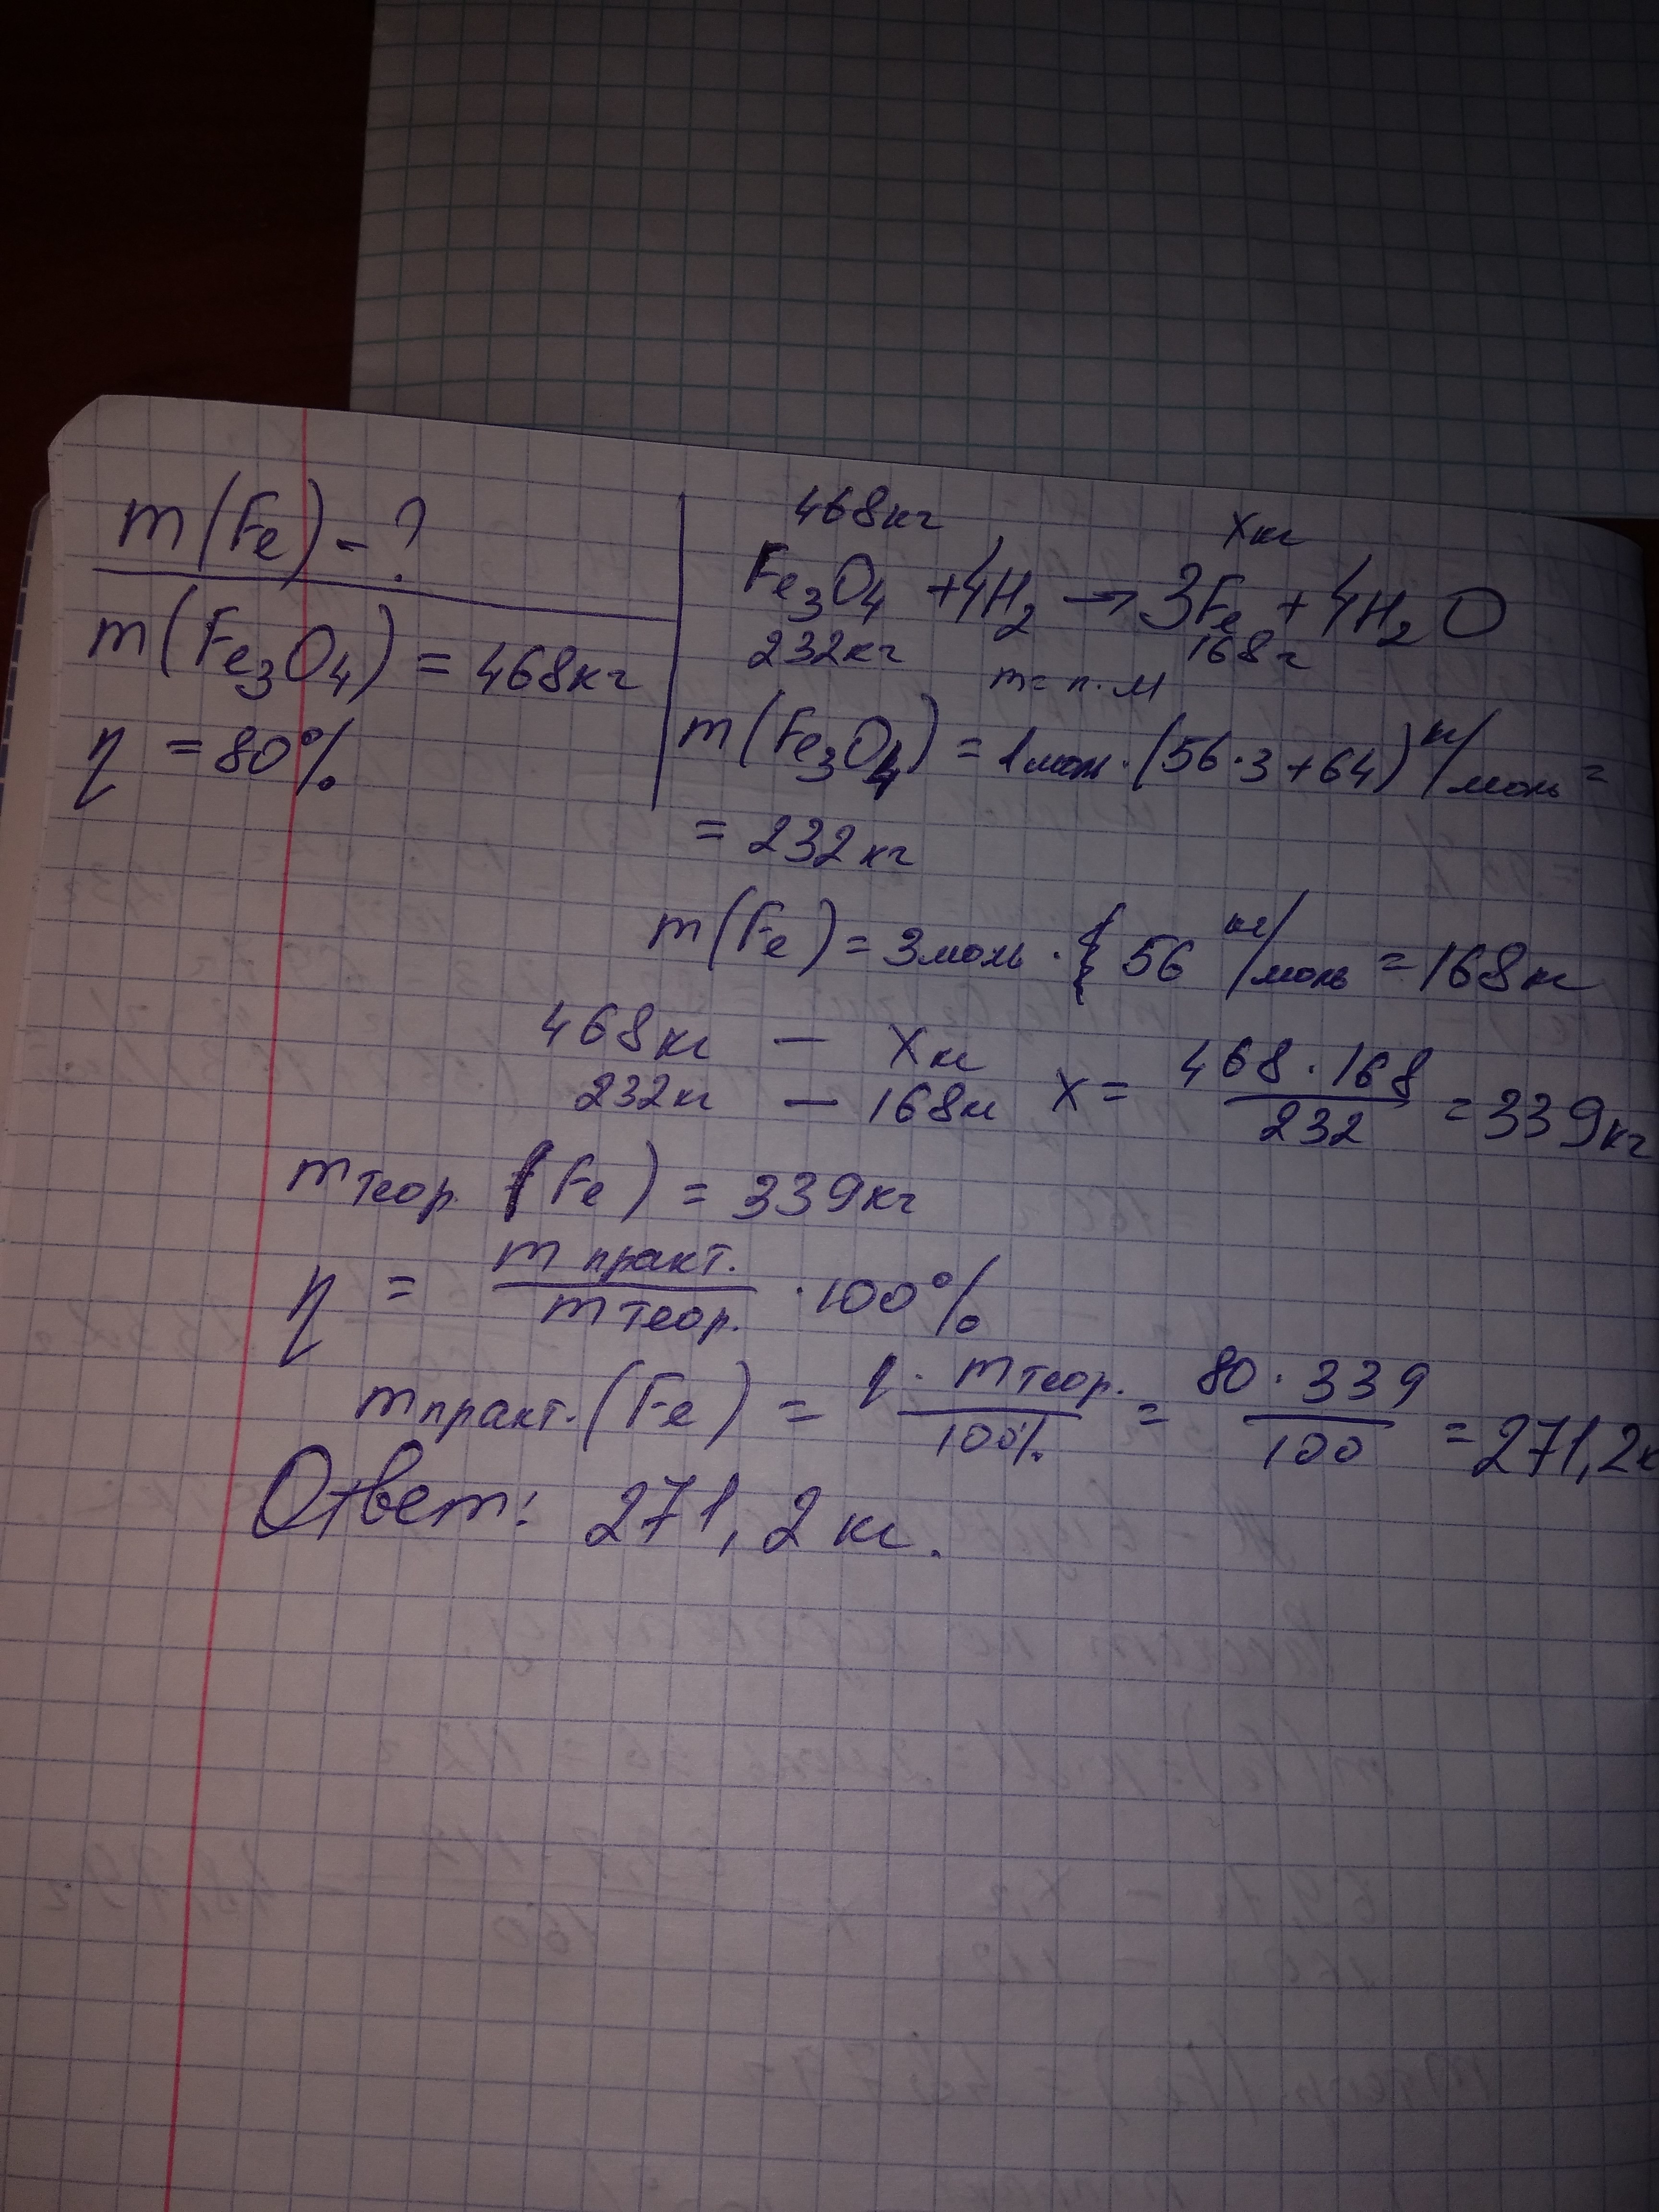 m(Fe) - ?
m(Fe₃O₄) = 468кг
η = 80%
468кг xкг
Fe₃O₄ + 4H₂ → 3Fe + 4H₂O
232кг 168г
m = n · M
m(Fe₃O₄) = 1моль · (56·3+64) кг/моль =
= 232кг
m(Fe) = 3моль · 56 кг/моль = 168кг
468кг — xкг
232кг — 168кг x = 468·168/232 = 339кг
mтеор. (Fe) = 339кг
η = mпракт./mтеор. · 100%
mпракт.(Fe) = η · mтеор./100% = 80 · 339/100 = 271,2к
Ответ: 271,2 кг.